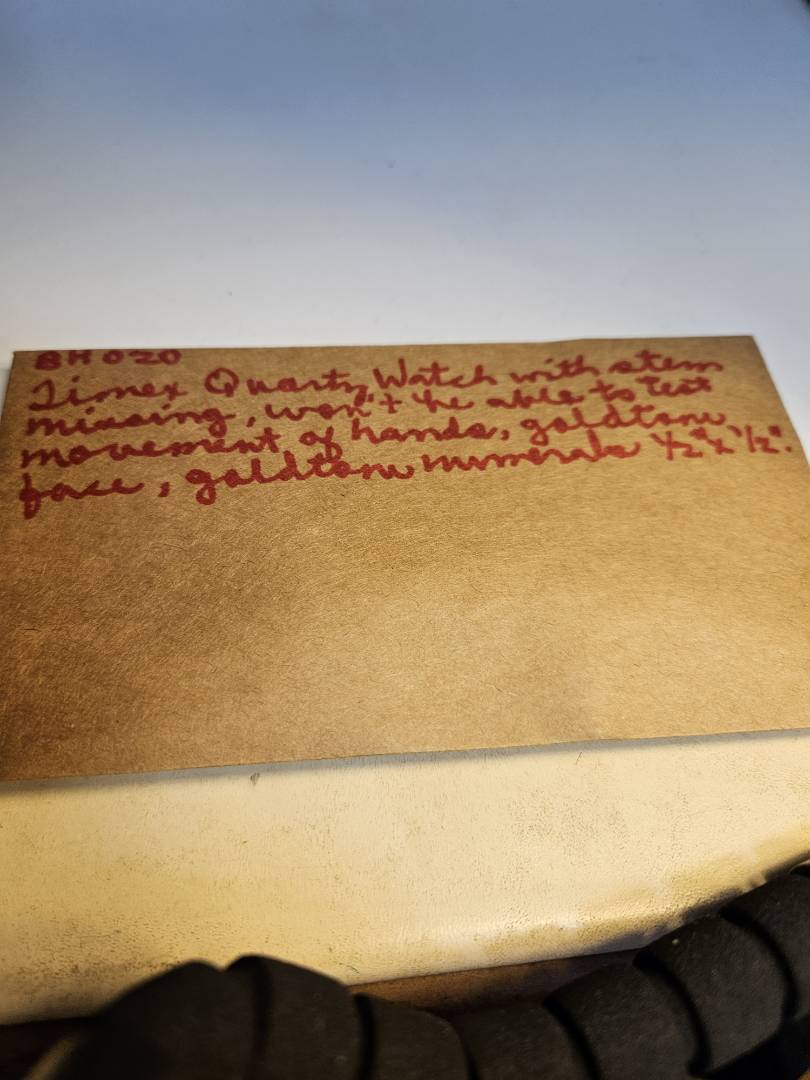 BH 020
Timex Quartz Watch with stem
missing, won't be able to test
movement of hands, goldtone
face, goldtone numerals 1/2" x 1/2".